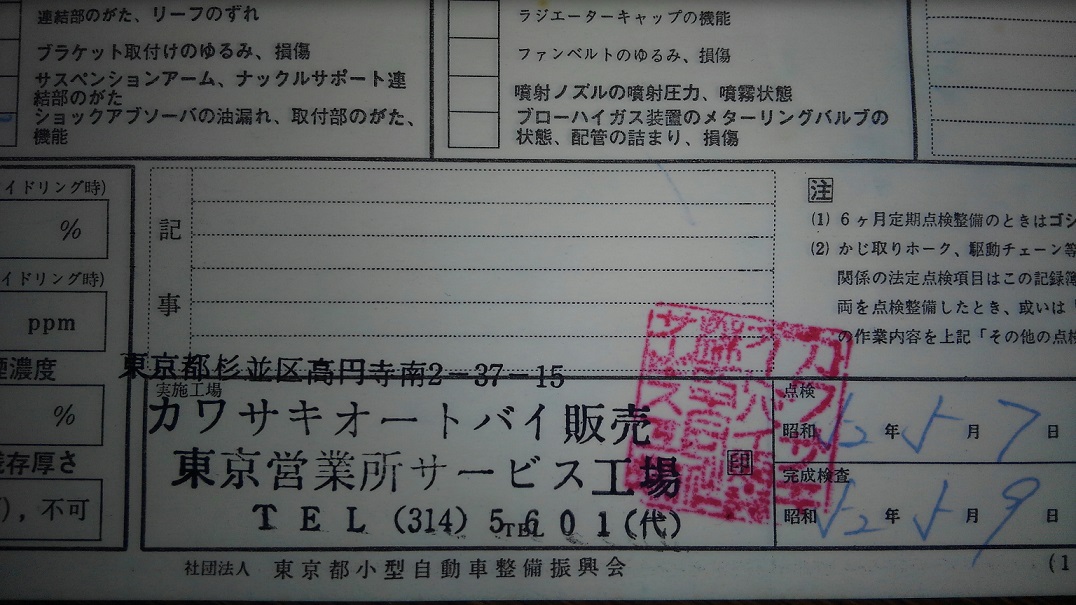 連結部のがた、リーフのずれ
ブラケット取付けのゆるみ、損傷
サスペンションアーム、ナックルサポート連
結部のがた
ショックアブソーバの油漏れ、取付部のがた、
機能
ラジエーターキャップの機能
ファンベルトのゆるみ、損傷
噴射ノズルの噴射圧力、噴霧状態
ブローハイガス装置のメターリングバルブの
状態、配管の詰まり、損傷
イドリング時)
%
イドリング時)
ppm
濃度
%
残存厚さ
), 不可
記
事
注
(1) 6ヶ月定期点検整備のときはゴシ
(2) かじ取りホーク、駆動チェーン等
関係の法定点検項目はこの記録簿
両を点検整備したとき、或いは「
の作業内容を上記「その他の点検
東京都杉並区高円寺南2-37-15
実施工場
カワサキオートバイ販売
東京営業所サービス工場
TEL (314) 5601(代)
TEL
印
点検
昭和 52 年 5 月 7 日
完成検査
昭和 52 年 5 月 9 日
社団法人 東京都小型自動車整備振興会
(1